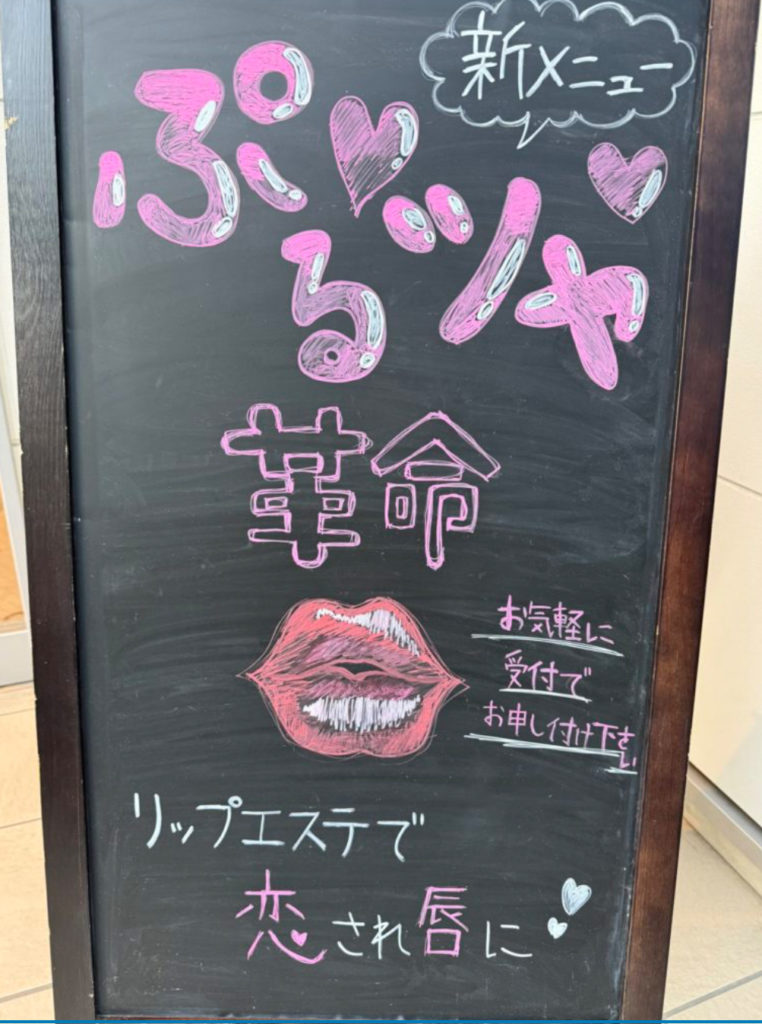 新メニュー
ぷるツヤ
革命
お気軽に
受付で
お申し付け下さい
リップエステで
恋され唇に